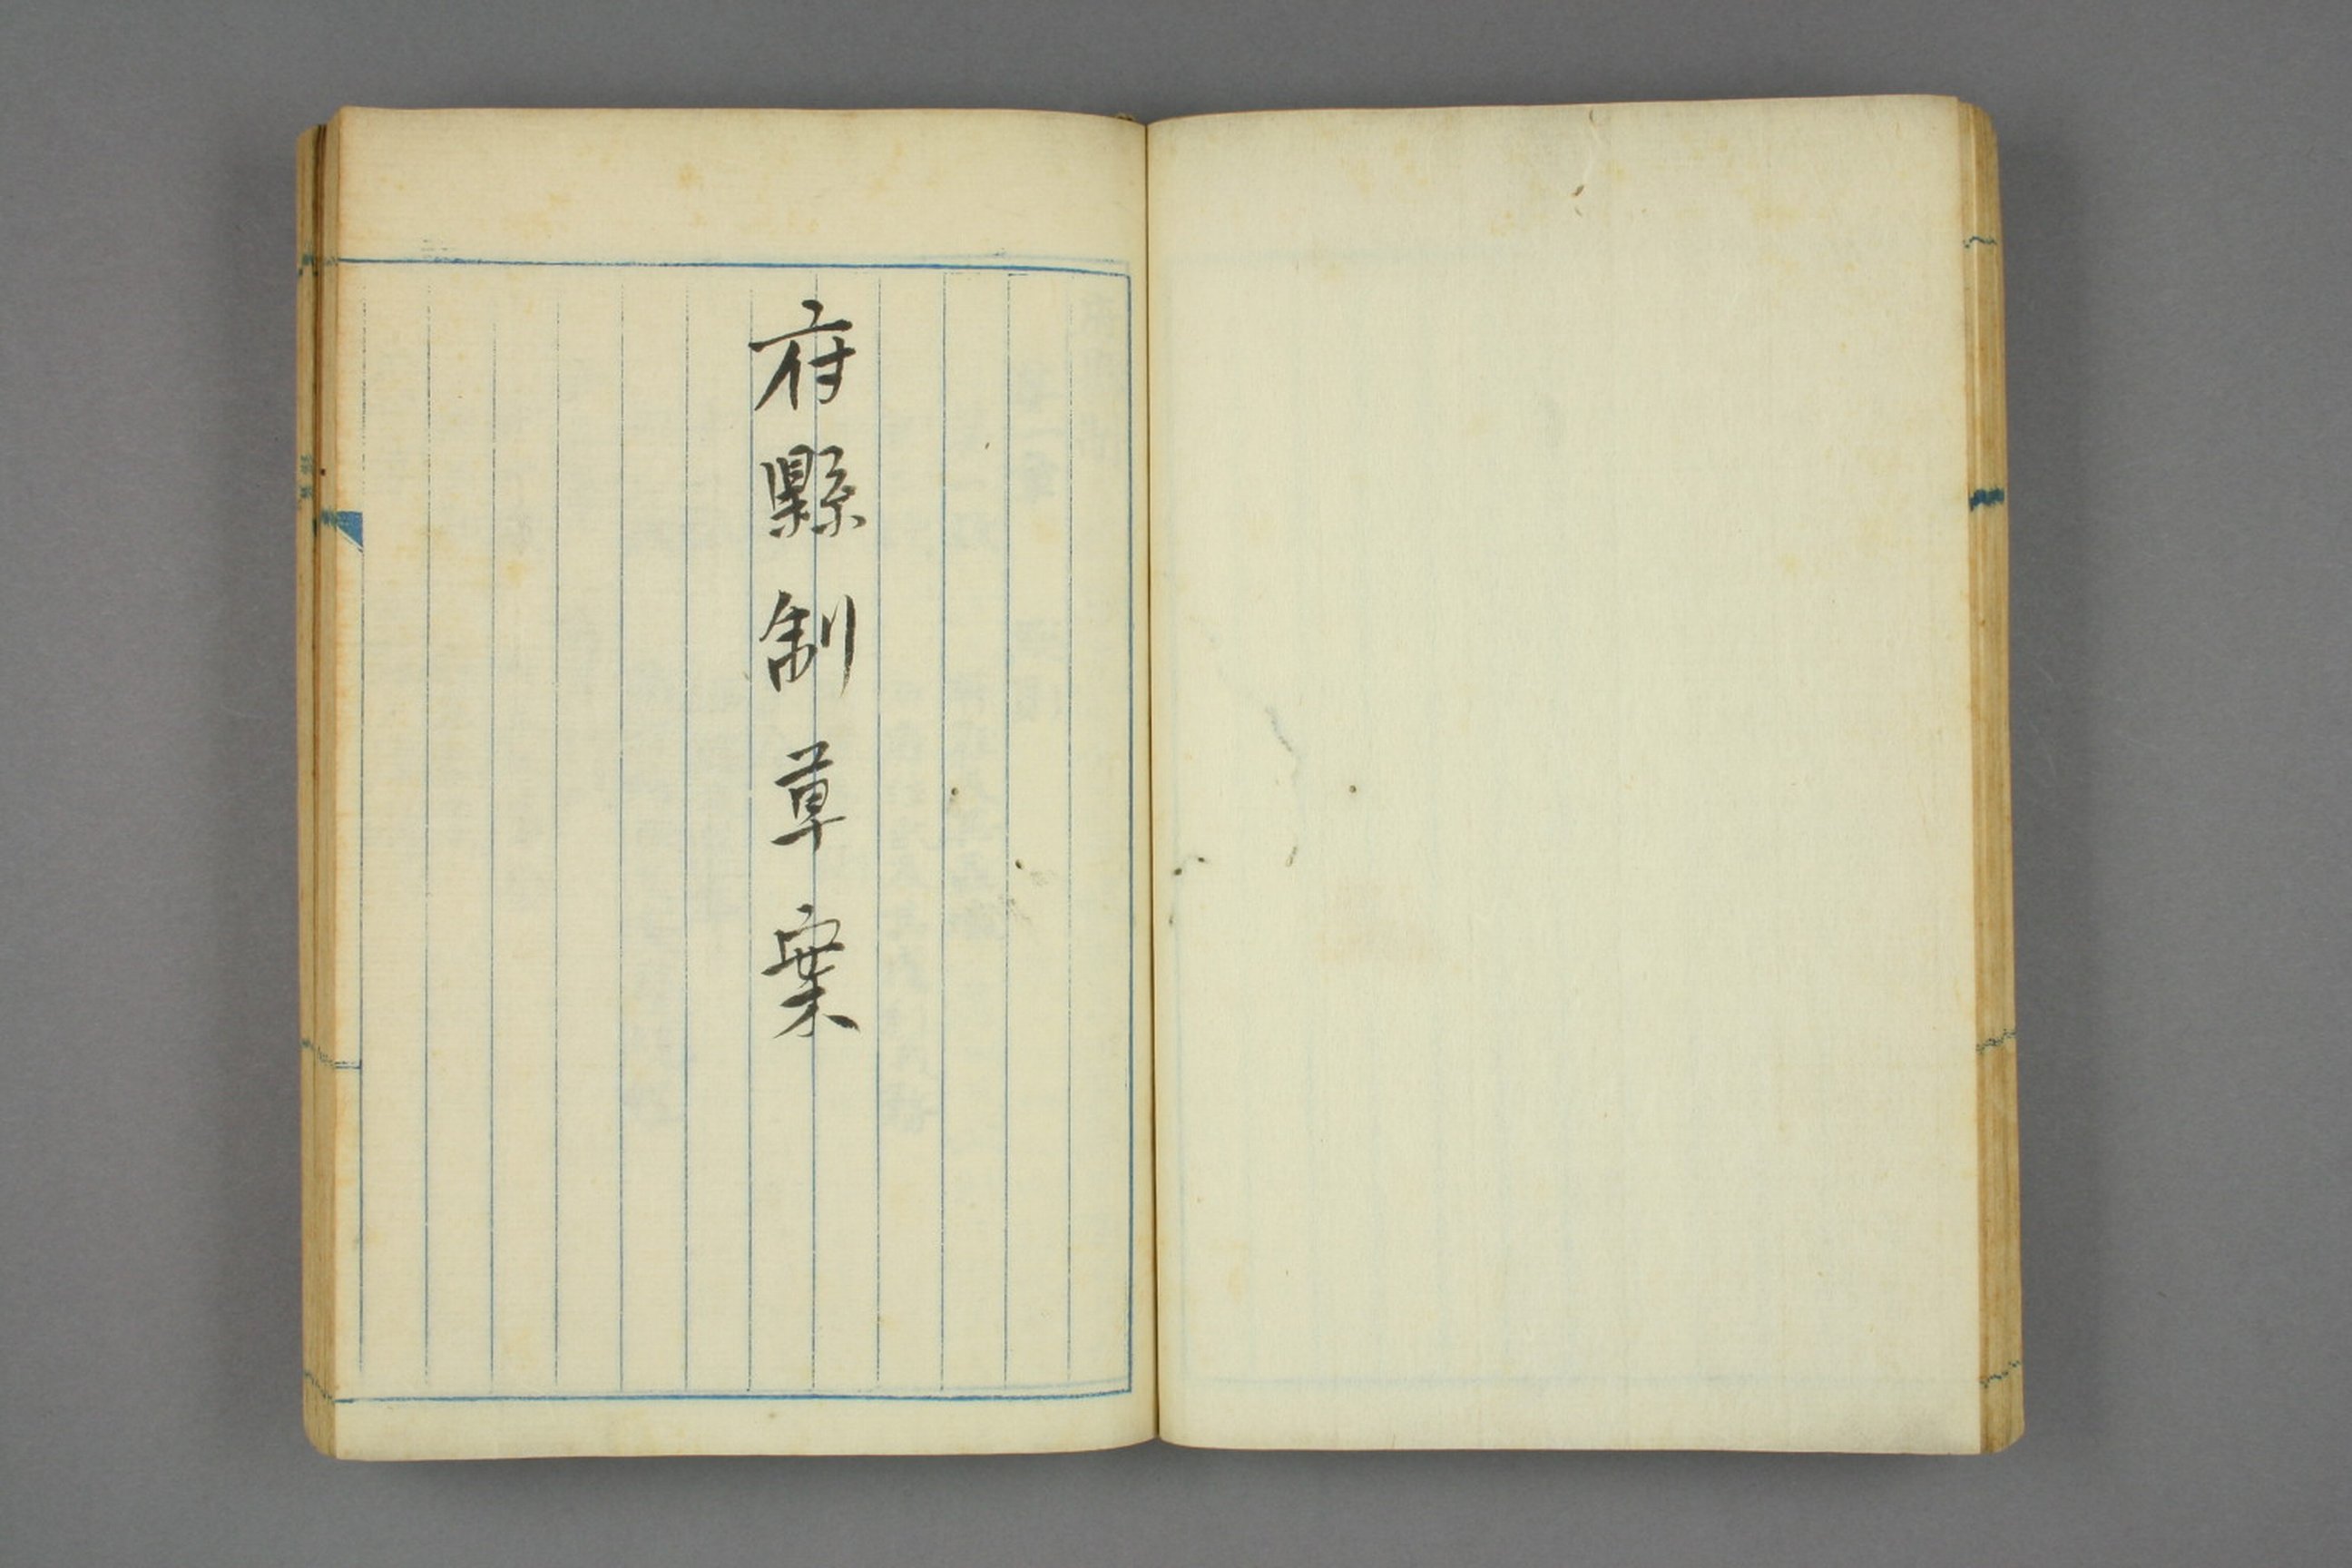 府縣制草案